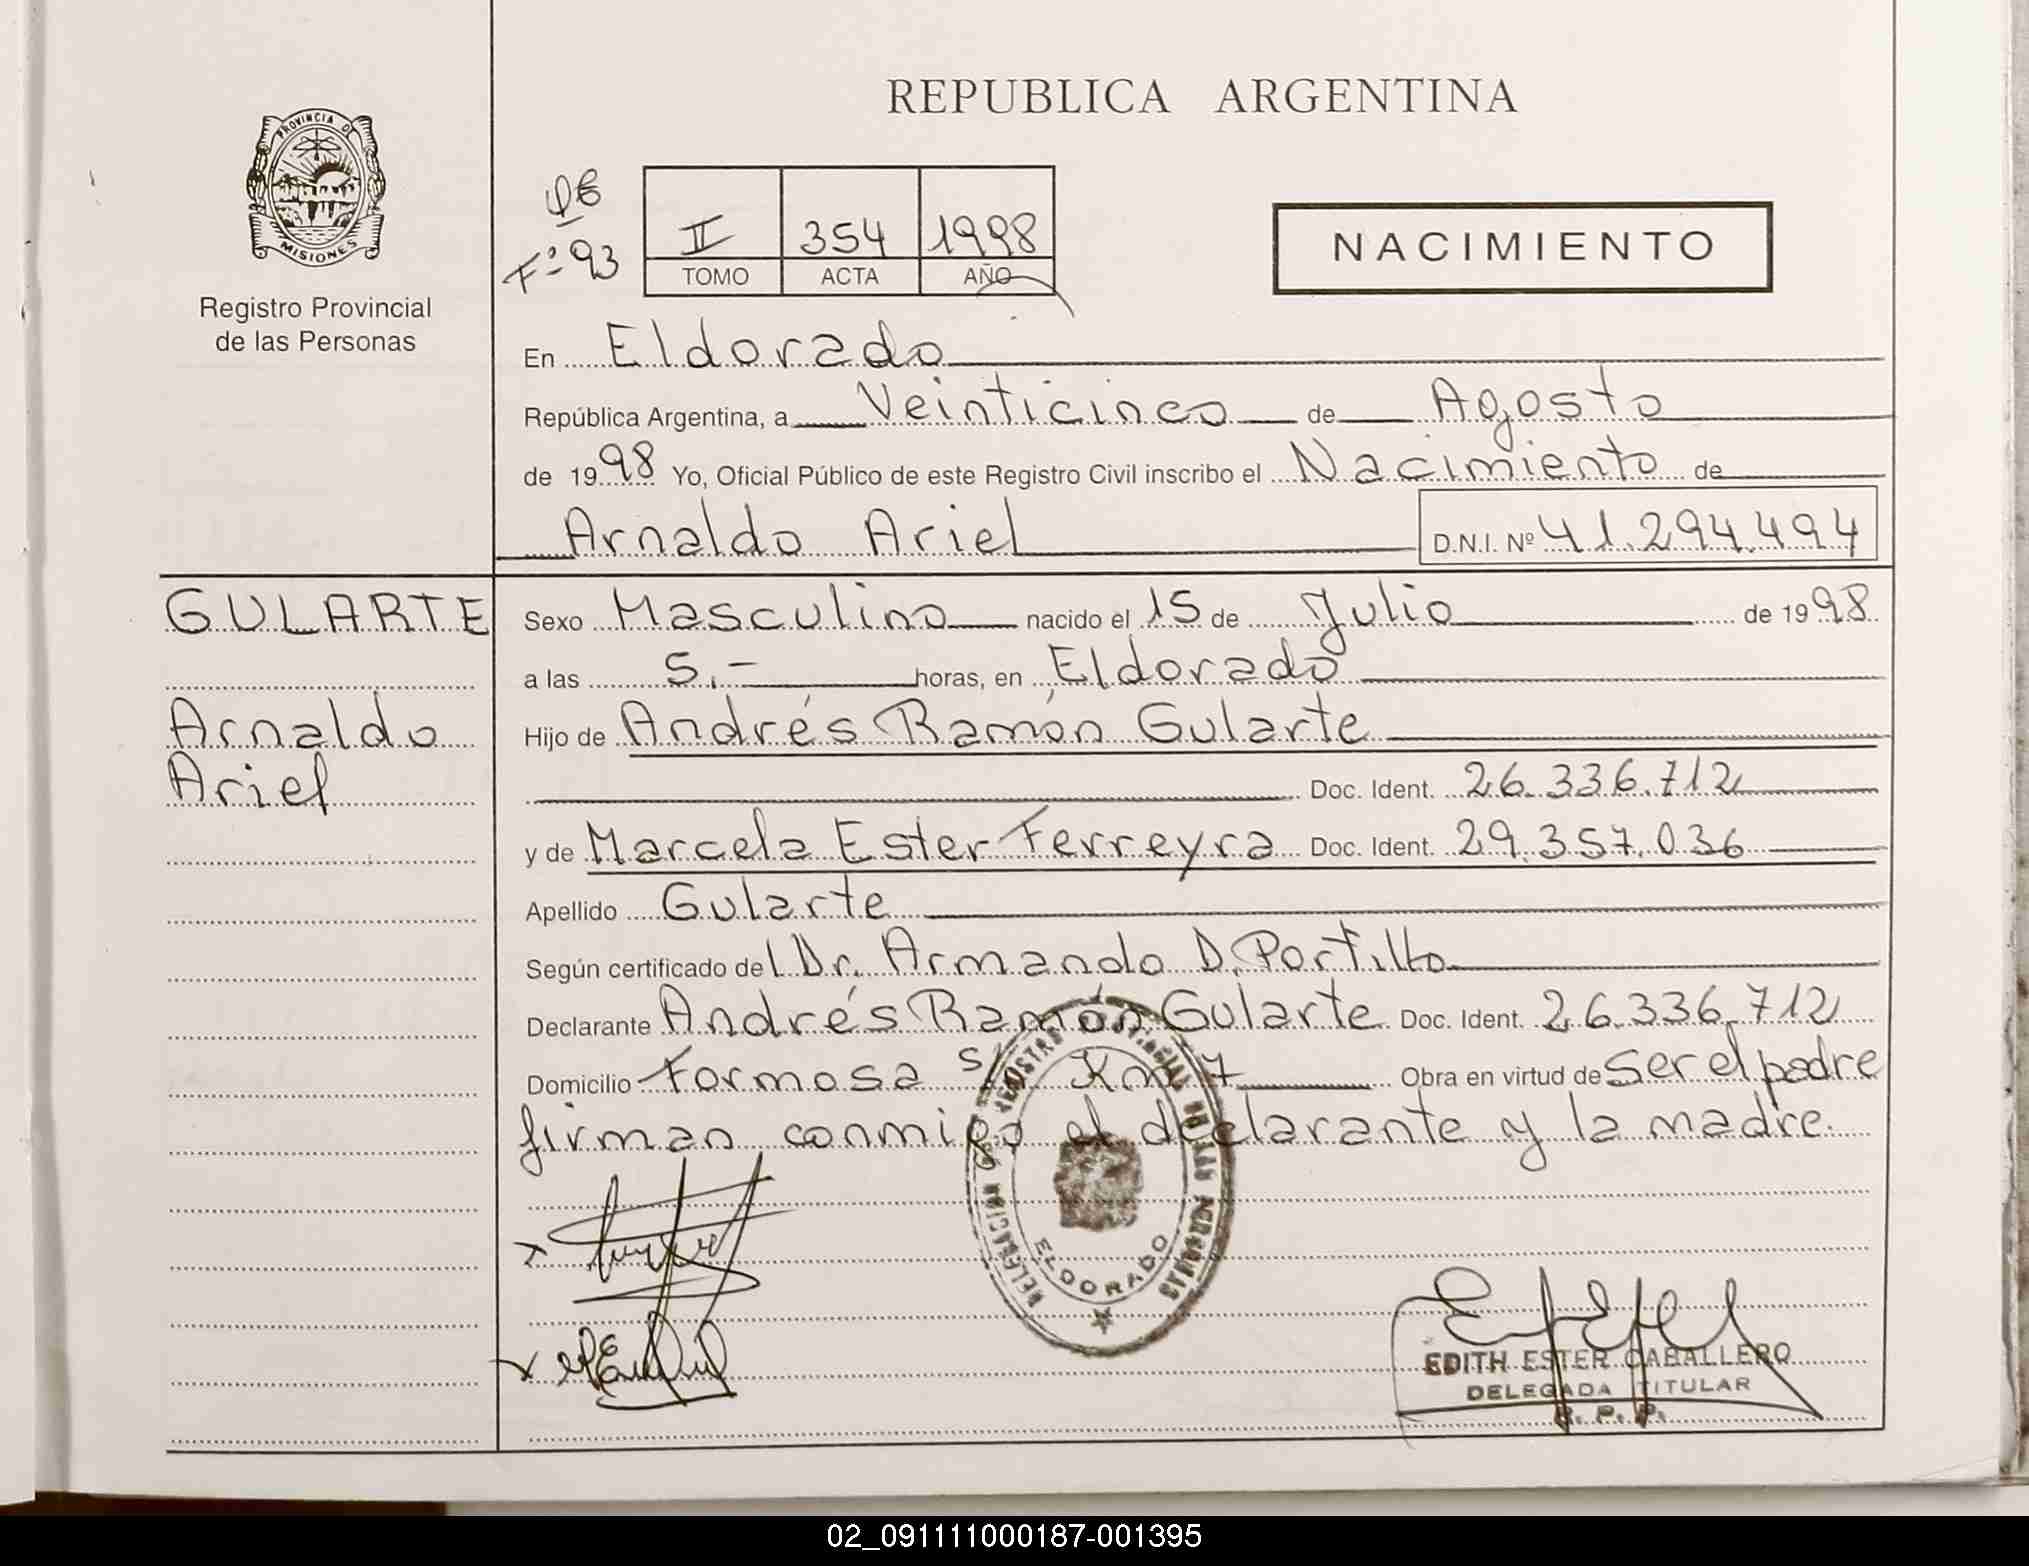 REPUBLICA ARGENTINA
PROVINCIA DE
MISIONES
Registro Provincial
de las Personas
Fº 93
II 354 1998
TOMO ACTA AÑO
NACIMIENTO
En Eldorado
República Argentina, a Veinticinco de Agosto
de 1998 Yo, Oficial Público de este Registro Civil inscribo el Nacimiento de
Arnaldo Ariel D.N.I. Nº 41.294.494
GULARTE
Arnaldo
Ariel
Sexo Masculino nacido el 15 de Julio de 1998
a las 5.- horas, en Eldorado
Hijo de Andrés Ramón Gularte
Doc. Ident. 26.336.712
y de Marcela Ester Ferreyra Doc. Ident. 29.357.036
Apellido Gularte
Según certificado del Dr. Armando D. Portillo
Declarante Andrés Ramón Gularte Doc. Ident. 26.336.712
Domicilio Formosa s/n Km 7 Obra en virtud de ser el padre
firman conmigo el declarante y la madre.
DELEGACION REGISTRO PROVINCIAL DE LAS PERSONAS
ELDORADO
EDITH ESTER CABALLERO
DELEGADA TITULAR
R. P. P.
02_091111000187-001395